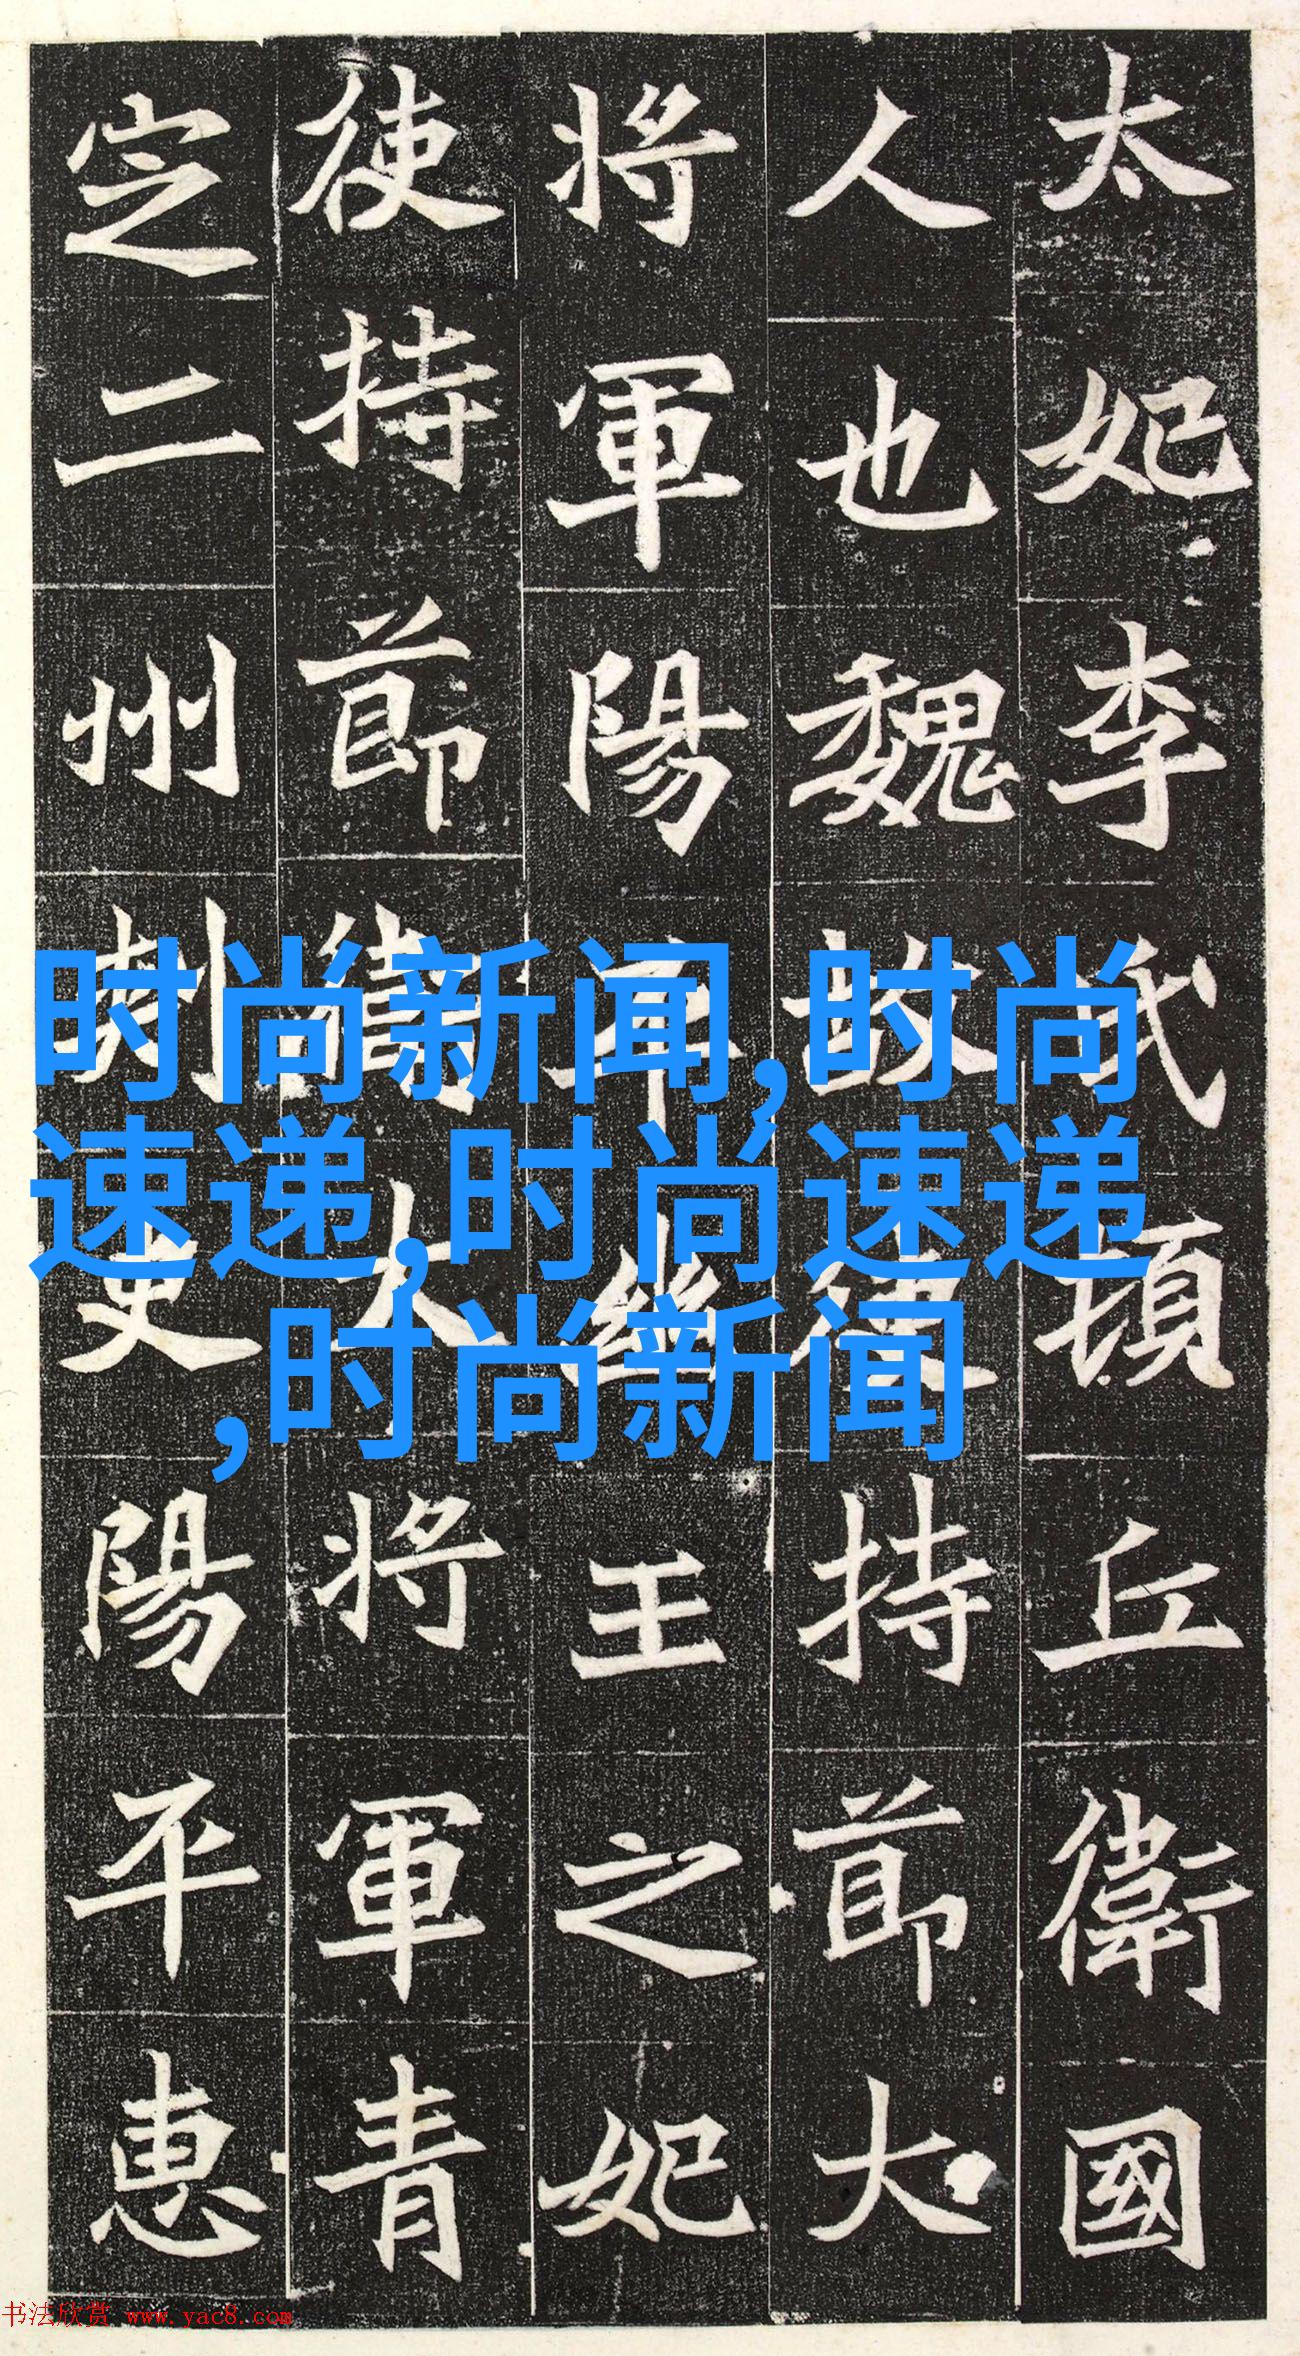 太妃李氏頓丘衛國
人也魏故使持節大
將軍陽平幽王之妃
使持節衛大將軍青
定二州刺史陽平惠
时尚新闻,时尚
速递,时尚速递
,时尚新闻
书法欣赏 www.yac8.com